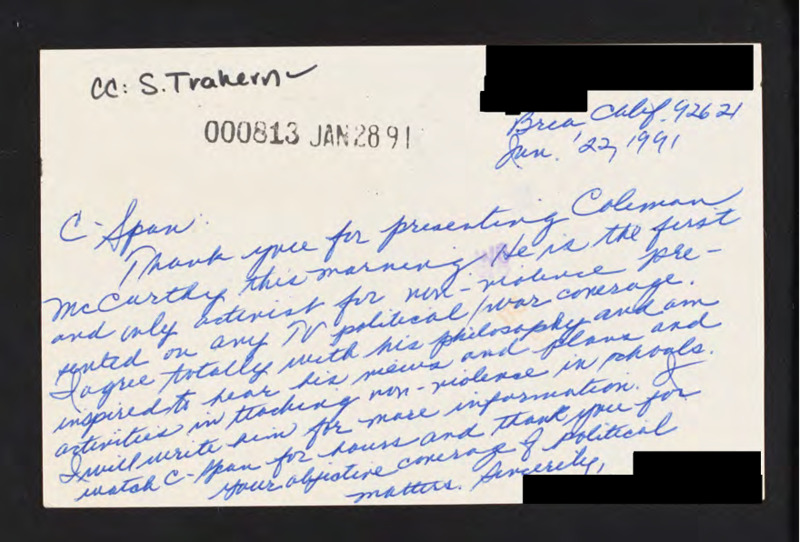 CC: S. Trahern
000813 JAN 28 91
Brea Calif. 92621
Jan. '22, 1991
C-Span:
Thank you for presenting Coleman
McCarthy this morning. He is the first
and only activist for non-violence pre-
sented on any TV political/war coverage.
I agree totally with his philosophy and am
inspired to hear his views and plans and
activities in teaching non-violence in schools.
I will write him for more information. I
watch C-Span for hours and thank you for
your objective coverage of political
matters. Sincerely,